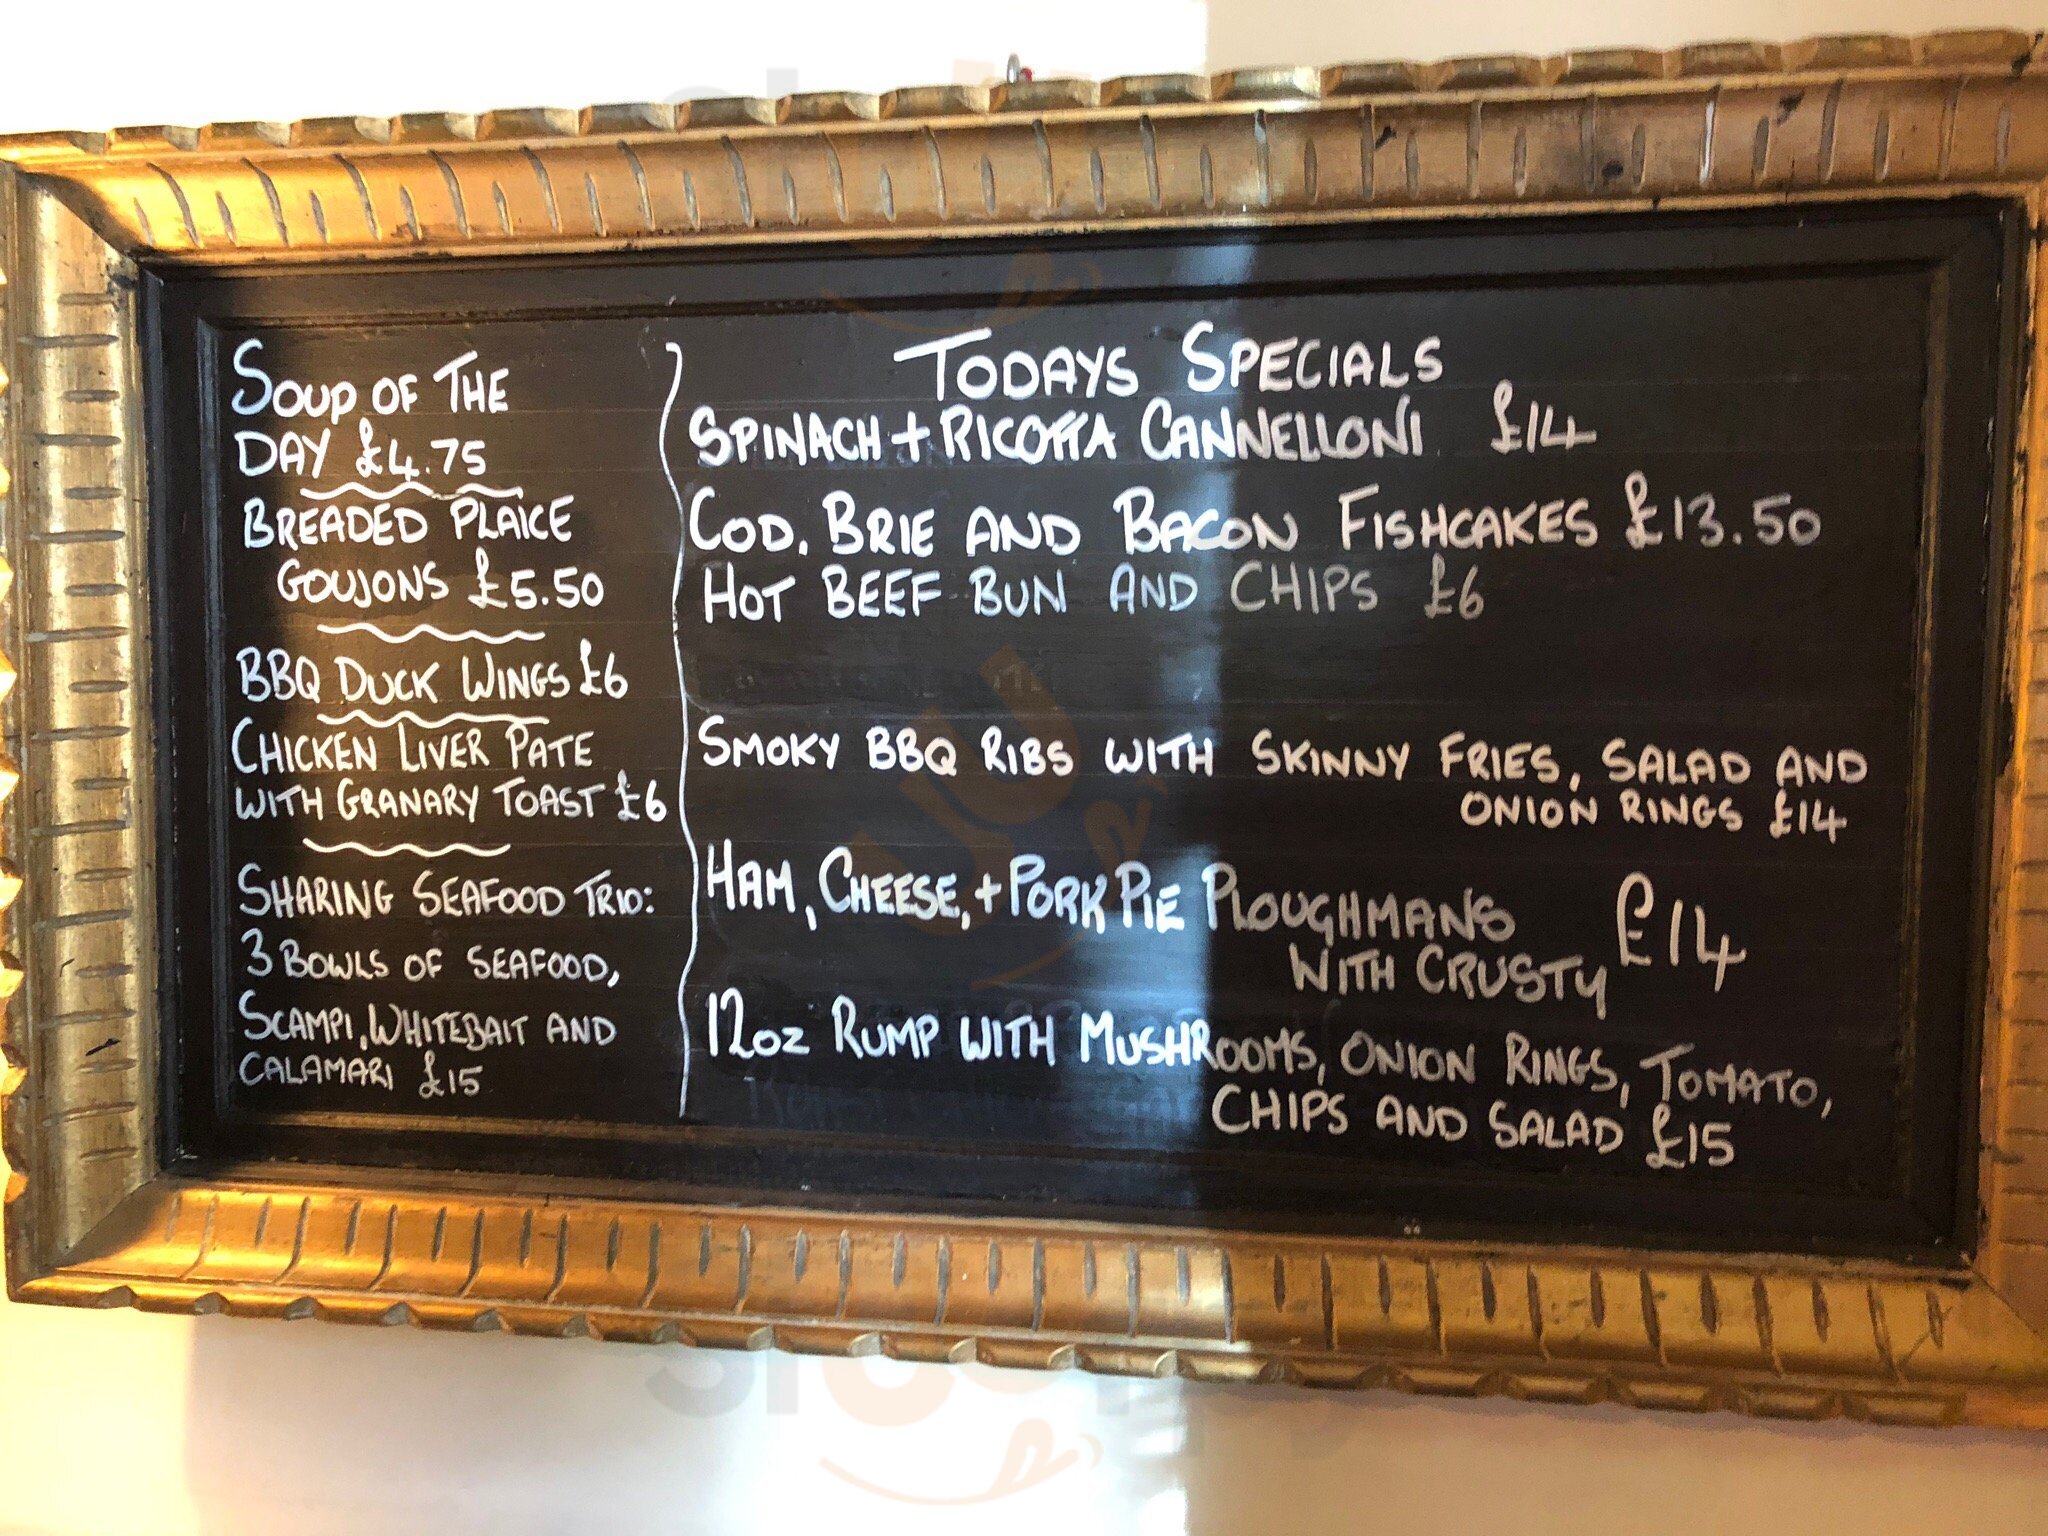 SOUP OF THE
DAY £4.75
BREADED PLAICE
GOUJONS £5.50
BBQ DUCK WINGS £6
CHICKEN LIVER PATE
WITH GRANARY TOAST £6
SHARING SEAFOOD TRIO:
3 BOWLS OF SEAFOOD,
SCAMPI, WHITEBAIT AND
CALAMARI £15
TODAYS SPECIALS
SPINACH + RICOTTA CANNELLONI £14
COD, BRIE AND BACON FISHCAKES £13.50
HOT BEEF BUN AND CHIPS £6
SMOKY BBQ RIBS WITH SKINNY FRIES, SALAD AND
ONION RINGS £14
HAM, CHEESE, + PORK PIE PLOUGHMANS £14
WITH CRUSTY
12OZ RUMP WITH MUSHROOMS, ONION RINGS, TOMATO,
CHIPS AND SALAD £15